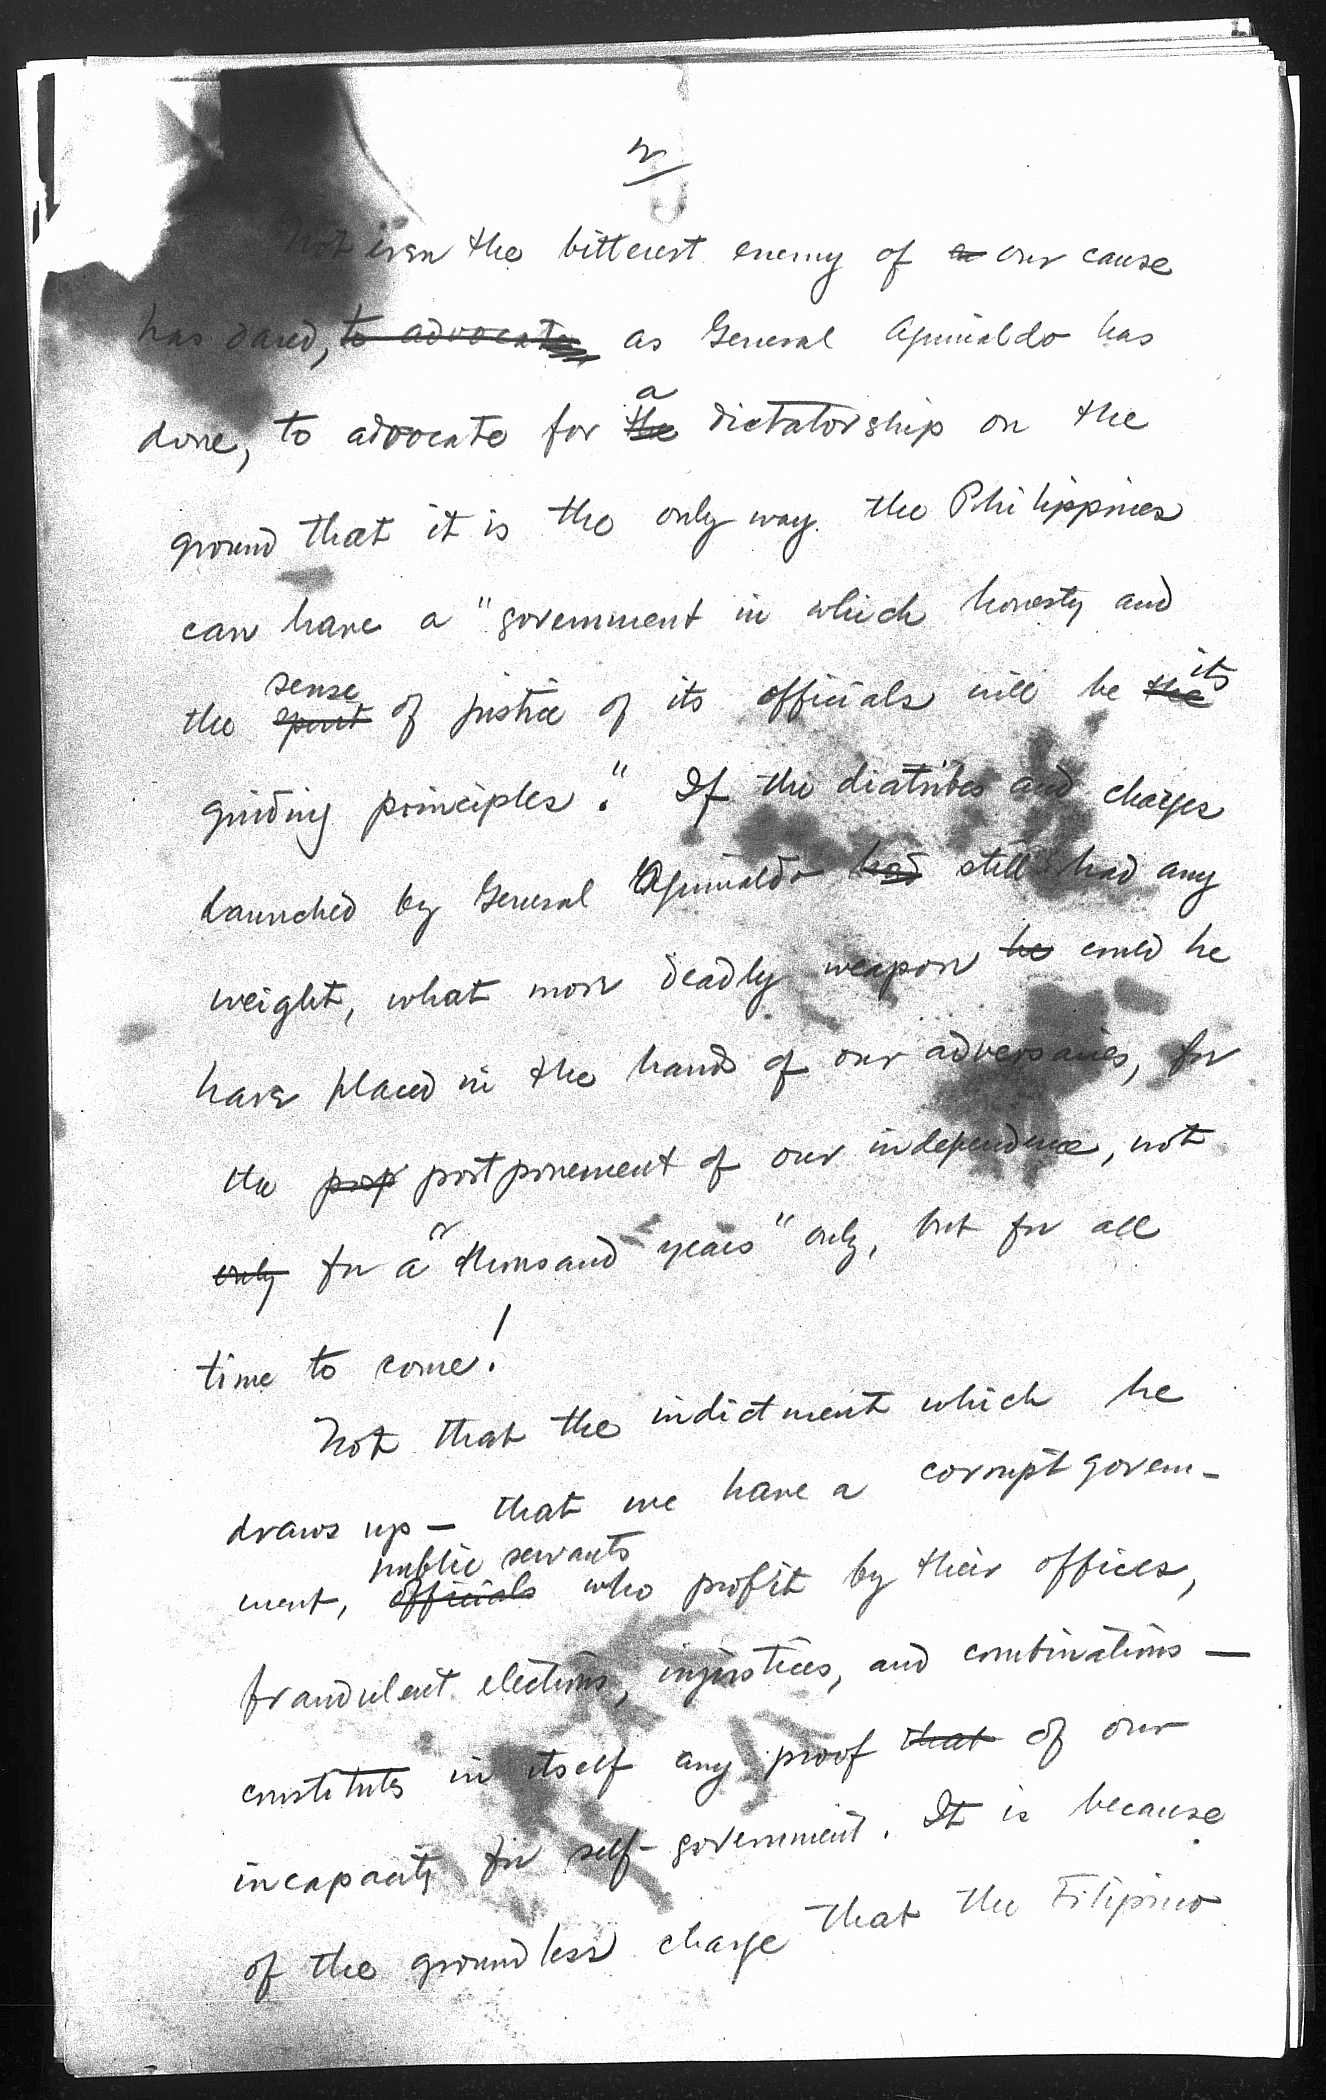 2
Not even the bitterest enemy of a our cause
has dared, to advocate as General Aguinaldo has
a
done, to advocate for the dictatorship on the
ground that it is the only way the Philippines
can have a "government in which honesty and
sense its
the spirit of justice of its officials will be the
guiding principles." If the diatribes and charges
launched by General Aguinaldo had still had any
weight, what more deadly weapon he could he
have placed in the hands of our adversaries, for
the prop postponement of our independence, not
only for a "thousand years" only, but for all
time to come!
Not that the indictment which he
draws up — that we have a corrupt govern-
public servants
ment, officials who profit by their offices,
fraudulent elections, injustices, and combinations —
constitutes in itself any proof that of our
incapacity for self-government. It is because
of the groundless charge that the Filipino